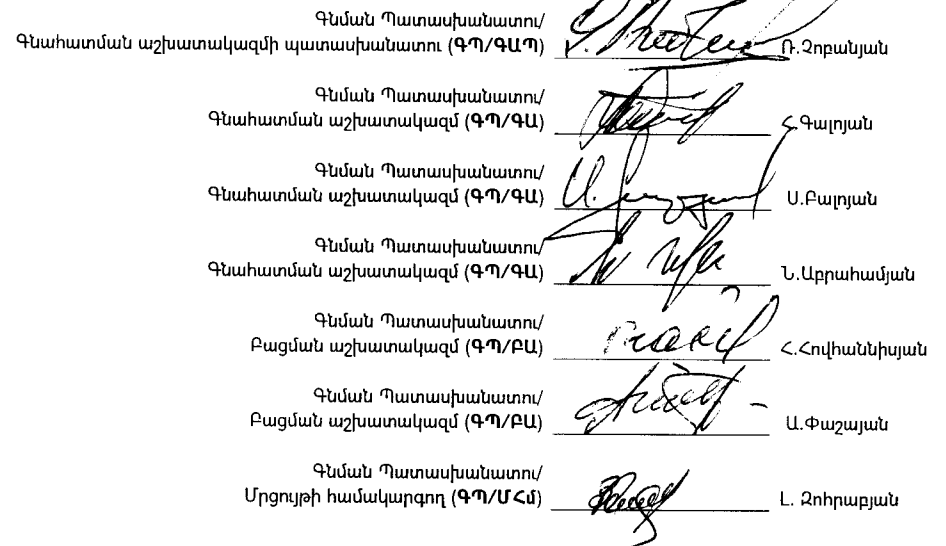 Գնման Պատասխանատու/
Գնահատման աշխատակազմի պատասխանատու (ԳՊ/ԳԱՊ) Ռ.Չոբանյան
Գնման Պատասխանատու/
Գնահատման աշխատակազմ (ԳՊ/ԳԱ) Հ.Գալոյան
Գնման Պատասխանատու/
Գնահատման աշխատակազմ (ԳՊ/ԳԱ) Ս.Բալոյան
Գնման Պատասխանատու/
Գնահատման աշխատակազմ (ԳՊ/ԳԱ) Ն.Աբրահամյան
Գնման Պատասխանատու/
Բացման աշխատակազմ (ԳՊ/ԲԱ) Հ.Հովհաննիսյան
Գնման Պատասխանատու/
Բացման աշխատակազմ (ԳՊ/ԲԱ) Ա.Փաշայան
Գնման Պատասխանատու/
Մրցույթի համակարգող (ԳՊ/ՄՀմ) Լ. Զոհրաբյան